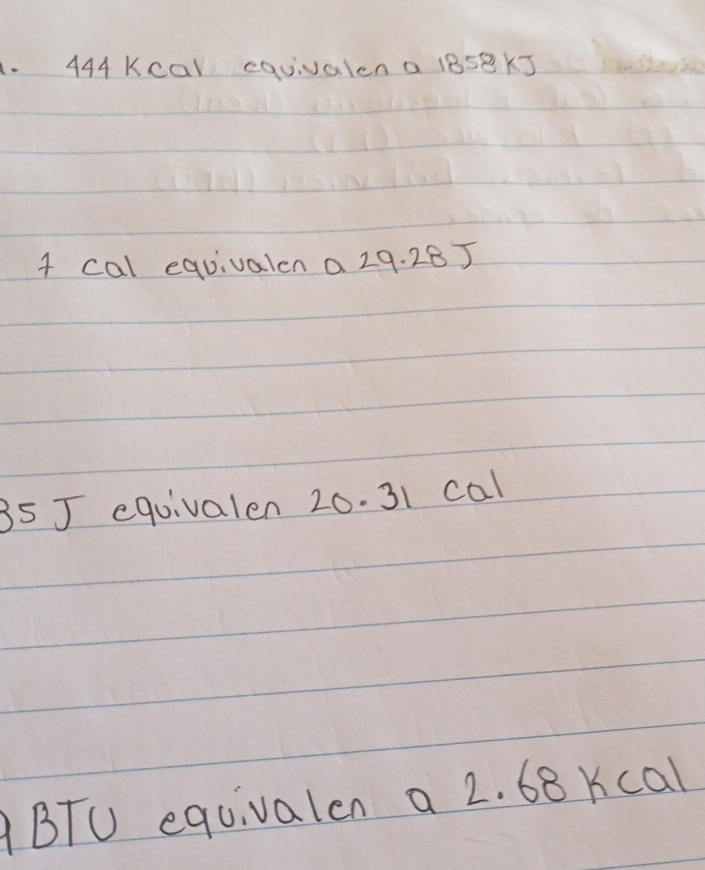 1. 444 Kcal equivalen a 1858 KJ
7 cal equivalen a 29.28 J
85 J equivalen 20.31 cal
9 BTU equivalen a 2.68 Kcal